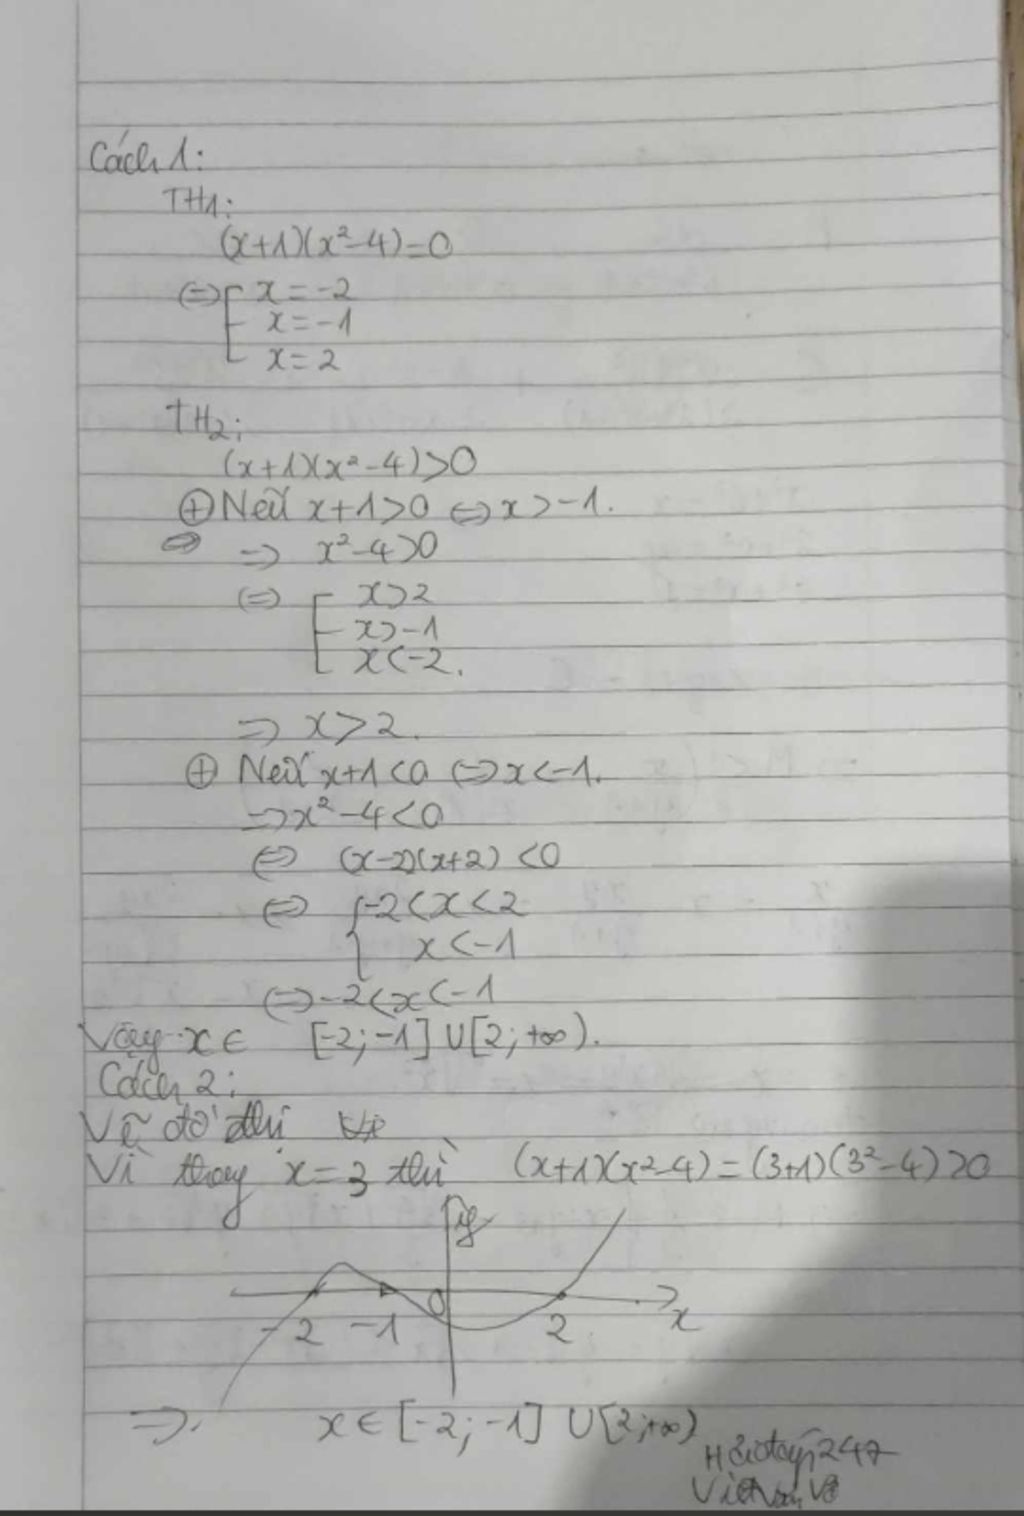 Cách 1:
TH1:
(x+1)(x²-4)=0
⇔ [ x=-2
x=-1
x=2
TH2:
(x+1)(x²-4)>0
⊕ Nếu x+1>0 ⇔ x>-1.
⇒ x²-4>0
⇔ [ x>2
x>-1
x<-2.
⇒ x>2.
⊕ Nếu x+1<0 ⇔ x<-1.
⇒ x²-4<0
⇔ (x-2)(x+2)<0
⇔ { -2<x<2
x<-1
⇔ -2<x<-1
Vậy x∈ [-2;-1]∪[2;+∞).
Cách 2:
Vẽ đồ thị
Vì thay x=3 thì (x+1)(x²-4)=(3+1)(3²-4)>0
y
0 x
-2 -1 2
⇒. x∈[-2;-1]∪[2;+∞)
247